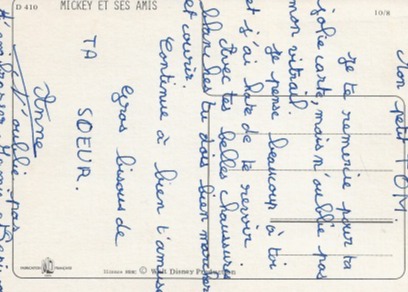 D 410
MICKEY ET SES AMIS
10/8
Mon petit TOM.
Je te remercie pour ta
jolie carte, mais n'oublie pas
mon vitrail.
Je pense beaucoup à toi
et j'ai hâte de te revoir
Avec tes belles chaussures
blanches tu dois bien marcher
et courir.
Continue à bien t'amuser
Gros bisous de
TA SOEUR.
Anne
N'oublie pas
FABRICATION FRANÇAISE
Licence
© Walt Disney Production